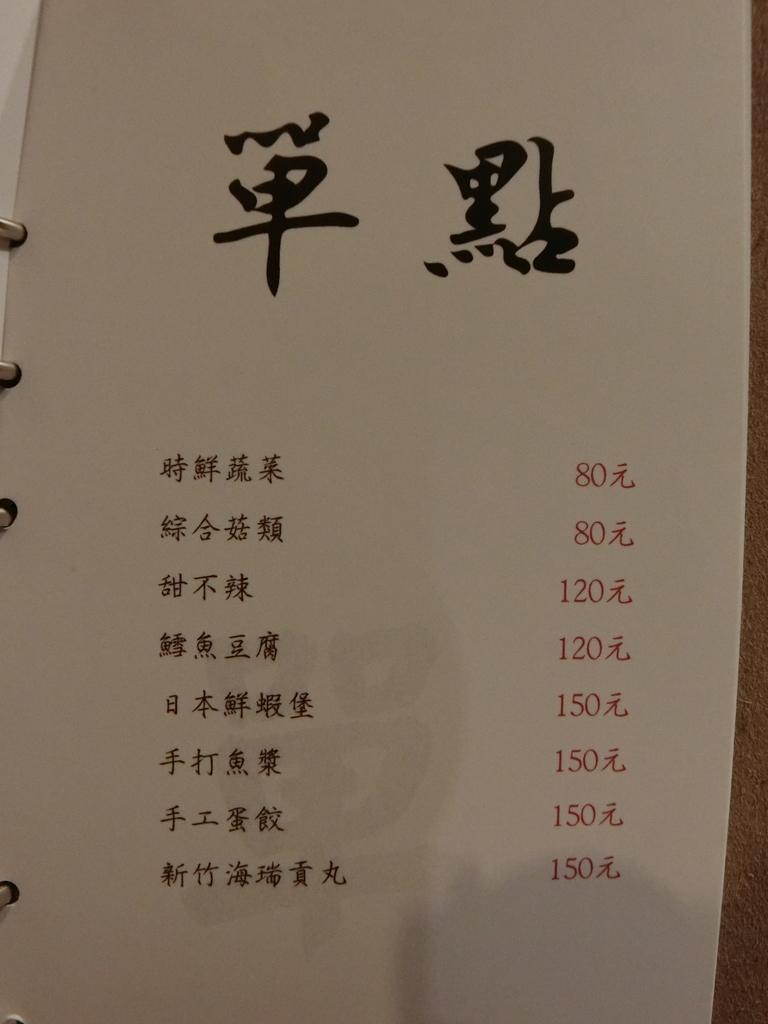 單點
時鮮蔬菜 80元
綜合菇類 80元
甜不辣 120元
鱈魚豆腐 120元
日本鮮蝦堡 150元
手打魚漿 150元
手工蛋餃 150元
新竹海瑞貢丸 150元